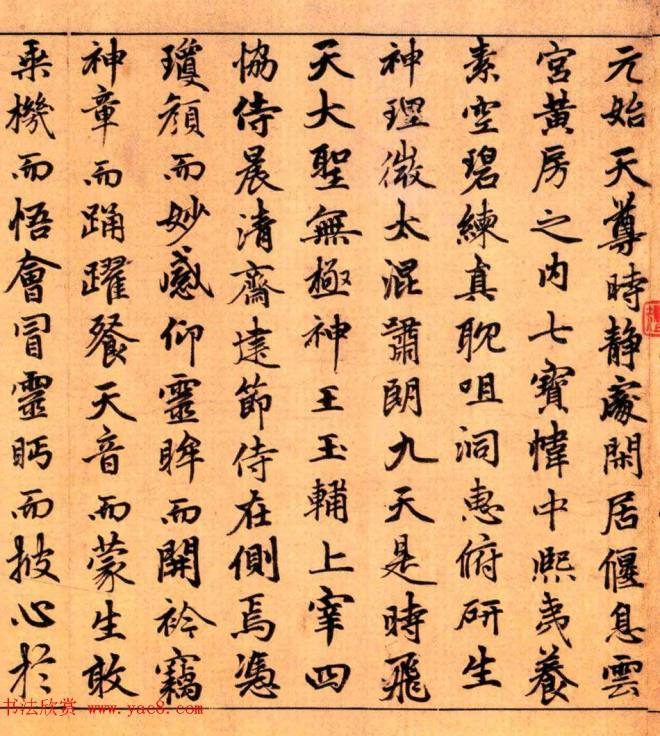 元始天尊時静處閑居偃息雲
宮黃房之内七寶幃中熙夷養
素空碧練真耽咀洞惠俯研生
神理微太混嘯朗九天是時飛
天大聖無極神王玉輔上宰四
協侍晨清齋建節侍在側焉憑
瓊顏而妙感仰靈眸而開衿竊
神章而踊躍餐天音而蒙生敢
乘機而悟會冒靈眄而披心於
书法欣赏 www.yac8.com